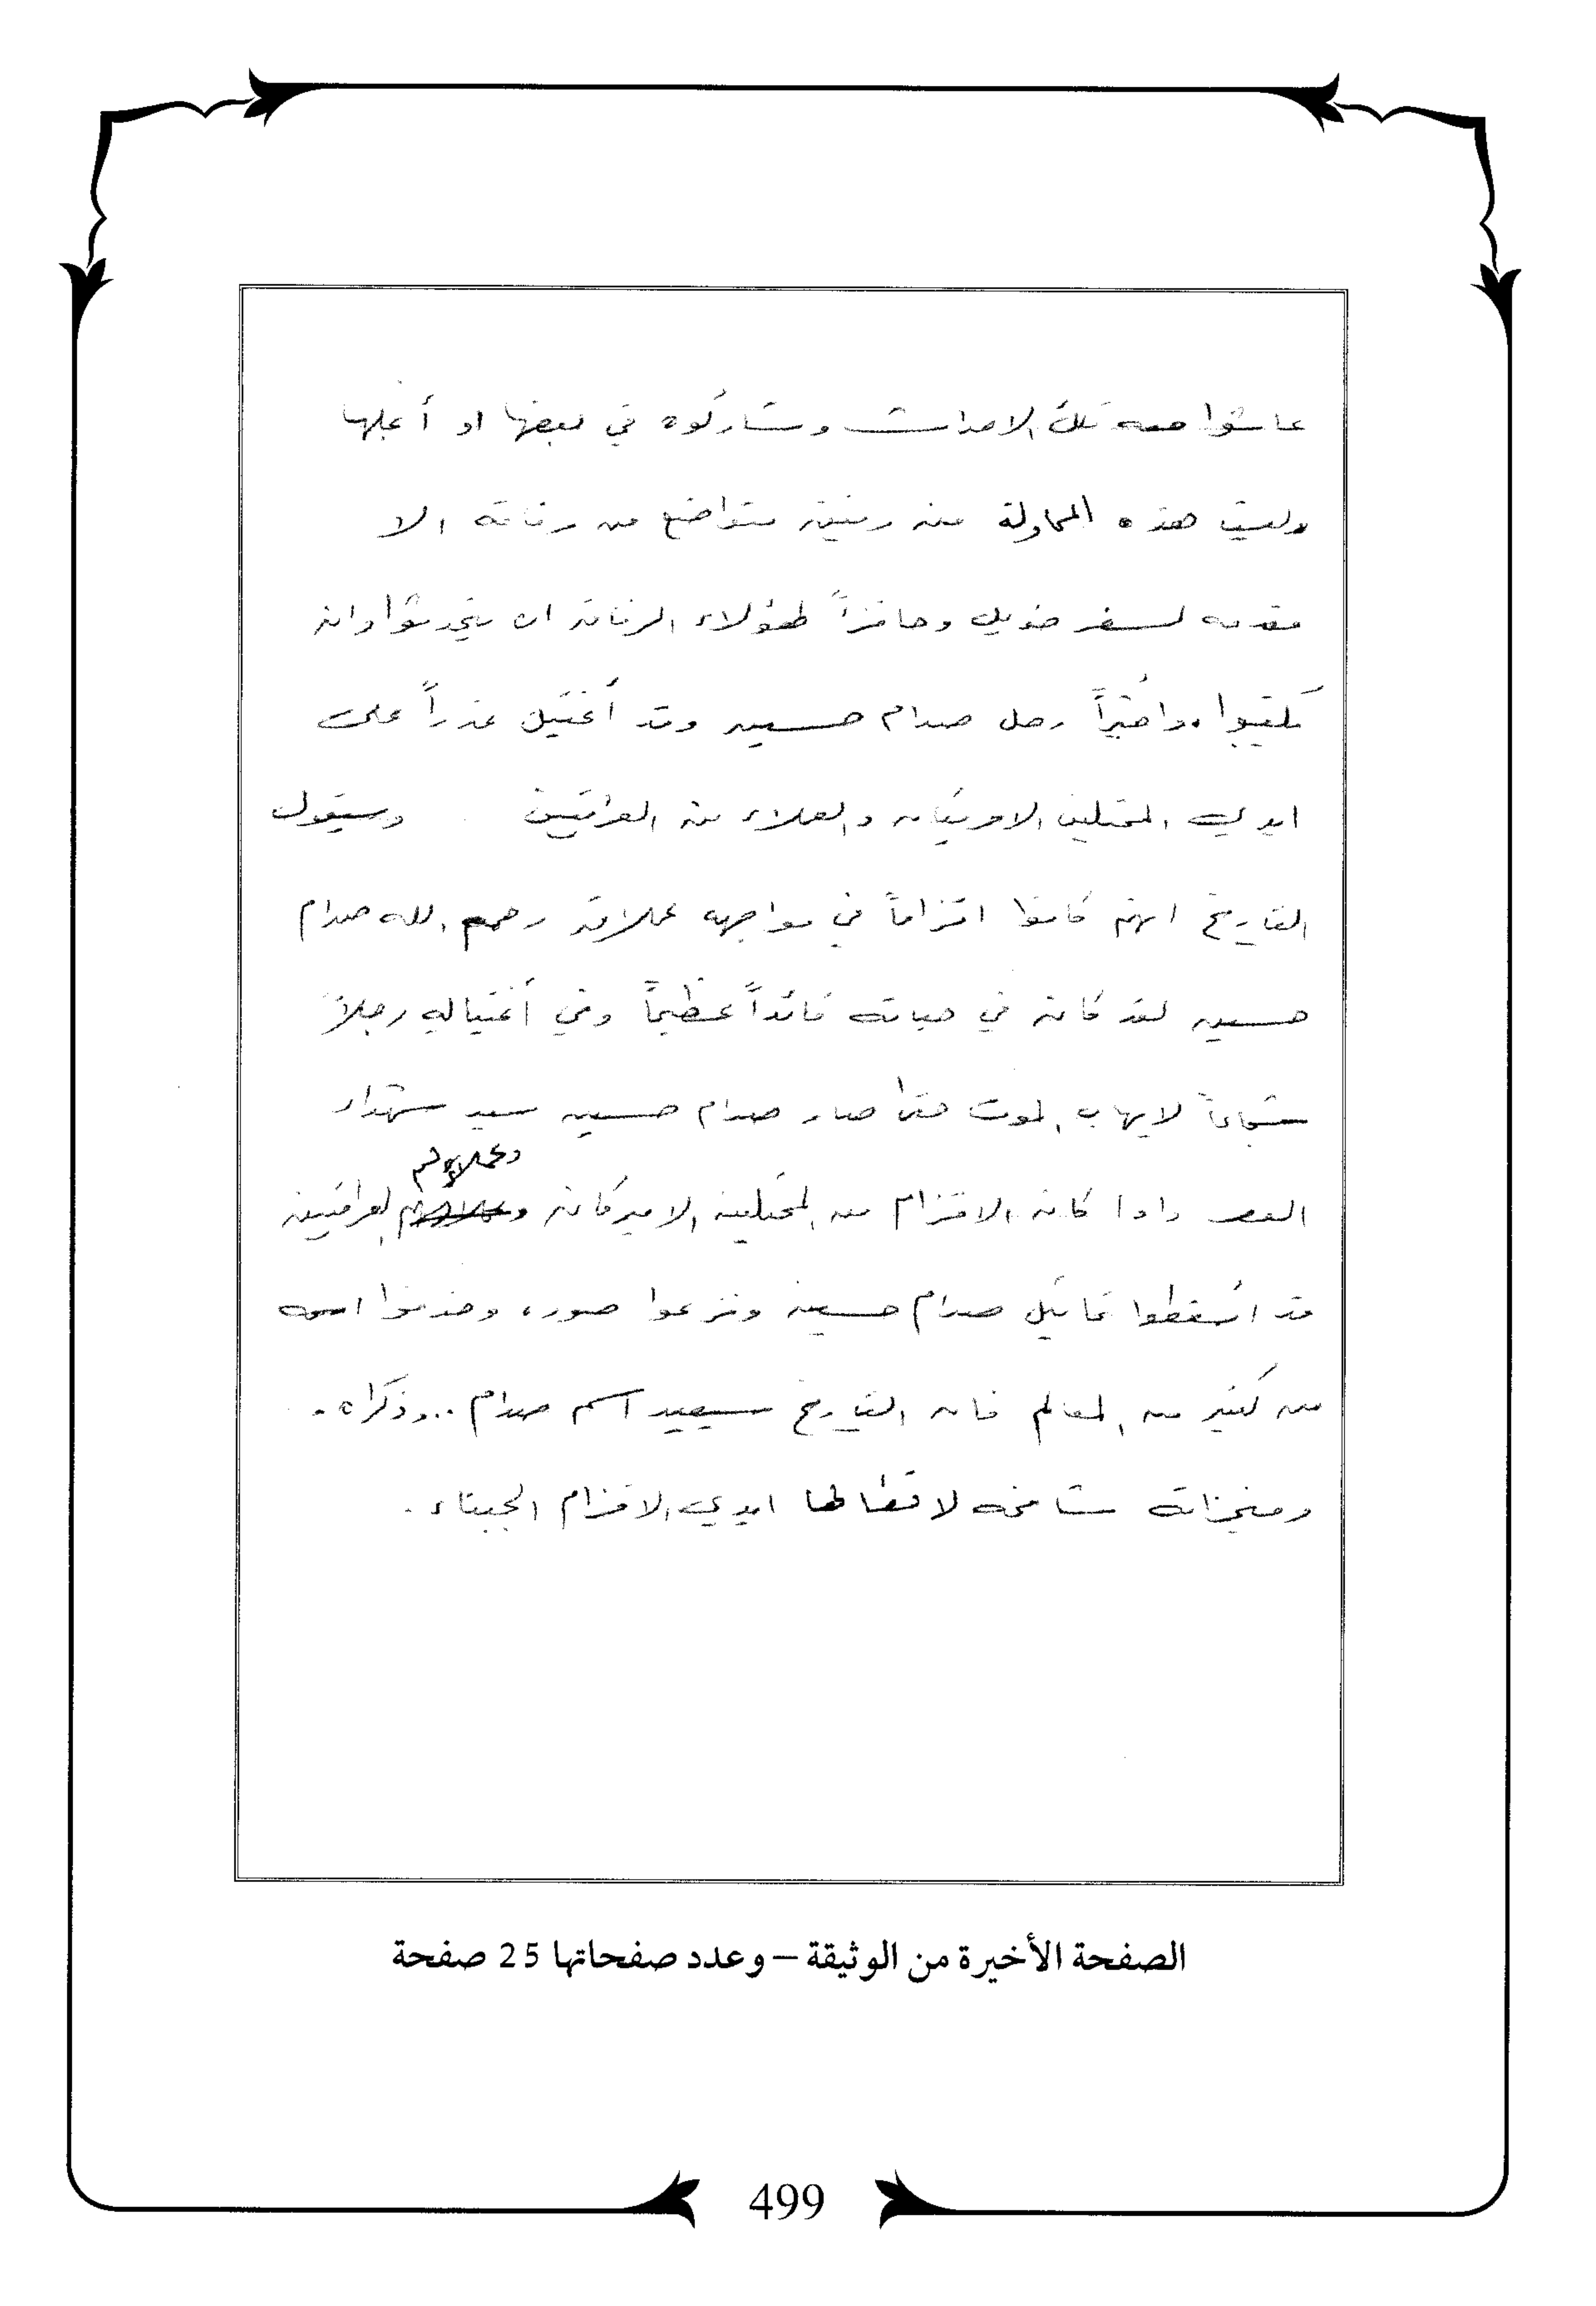 عاشوا معه تلك الاحداث وشاركوه في بعضها او أغلبها
وليست هذه المحاولة من رفيق متواضع من رفاقه الا
مقدمه لسفر طويل وحافزاً لهؤلاء الرفاق ان يتحدثوا وان
يكتبوا. وأخيراً رحل صدام حسين وقد أغتيل غدراً على
ايدي المحتلين الامريكان والعملاء من العراقيين وسيقول
التاريخ انهم كانوا اقزاماً في مواجهه عملاق رحم الله صدام
حسين لقد كان في حياته قائداً عظيماً وفي أغتياله رجلاً
شجاعاً لايهاب الموت حتى صار صدام حسين سيد شهداء
العصر واذا كان الاقزام من المحتلين الاميركان وعملائهم العراقيين
قد اسقطوا تماثيل صدام حسين ونزعوا صوره وحذفوا اسمه
من كثير من المعالم فان التاريخ سيعيد اسم صدام .. وذكراه .
ومنجزاته شامخه لاتطالها ايدي الاقزام الجبناء .
الصفحة الأخيرة من الوثيقة – وعدد صفحاتها 25 صفحة
499